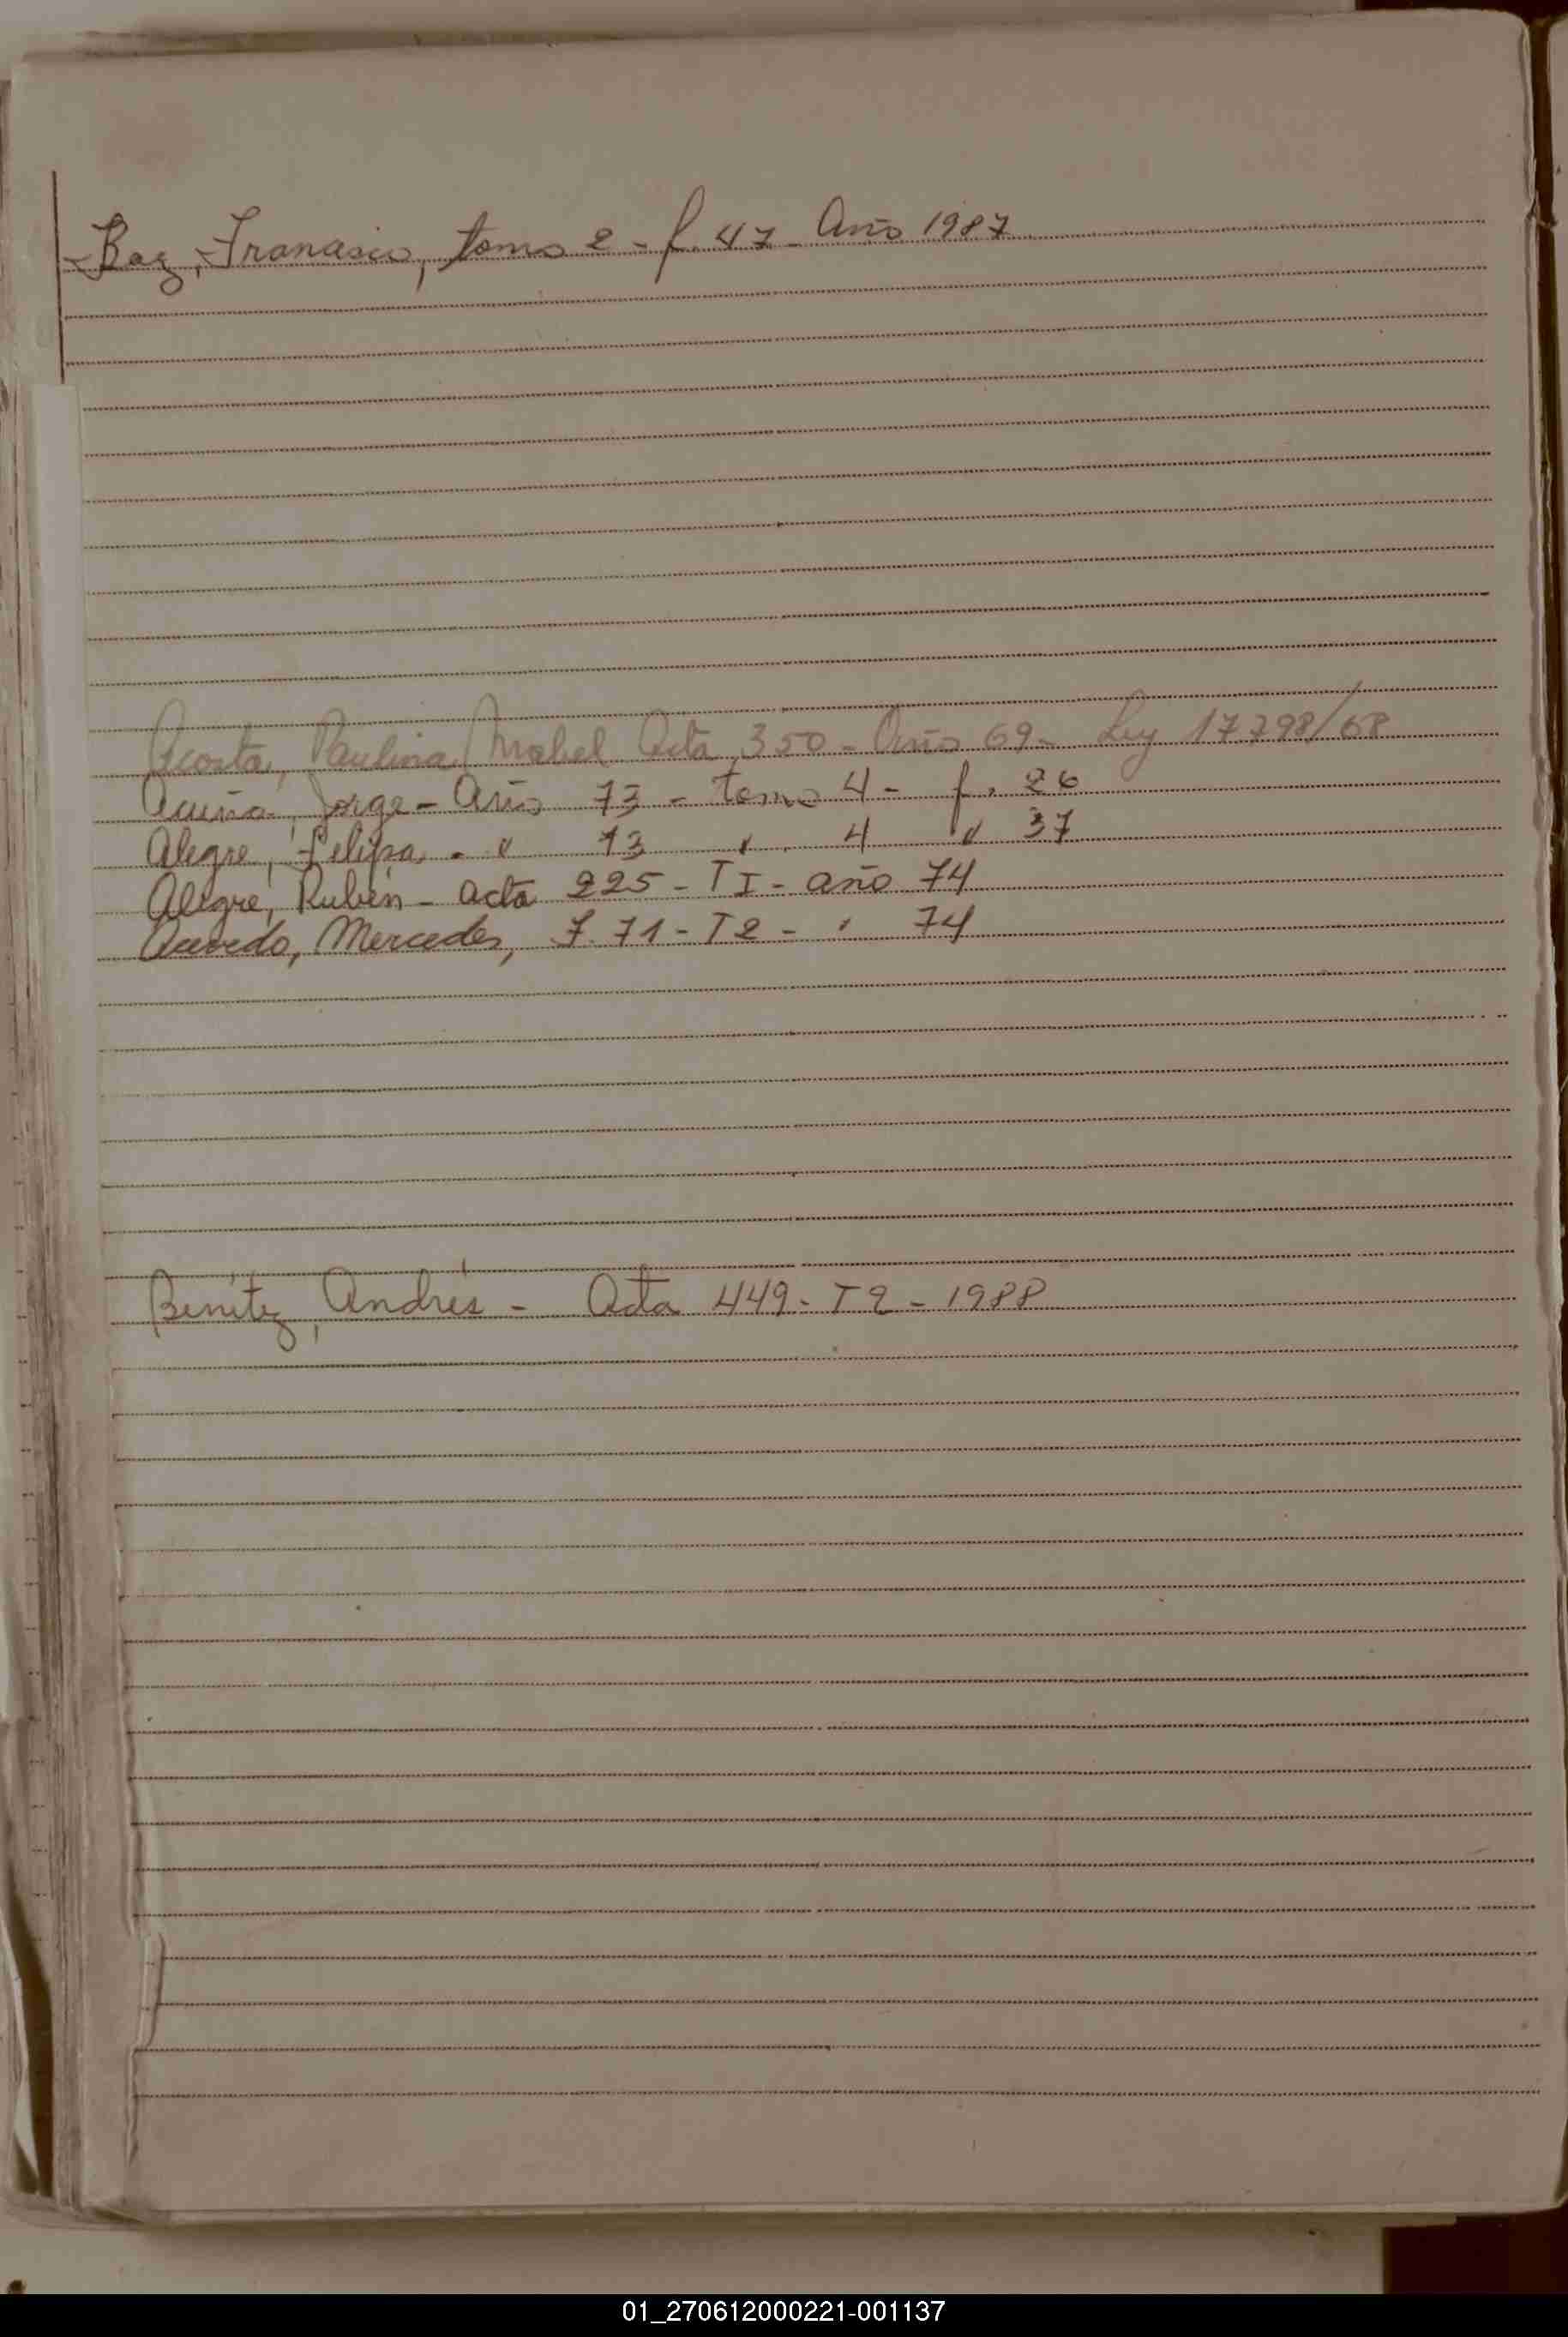 Baez, Francisco, tomo 2 - f. 47 - Año 1987
Acosta, Paulina Mabel Acta 350 - Año 69 - Ley 17798/68
Acuña, Jorge - Año 73 - tomo 4 - f. 26
Alegre, Felipa - " 73 " 4 " 37
Alegre, Rubén - acta 225 - T I - año 74
Acevedo, Mercedes, f. 71 - T 2 - " 74
Benítez, Andrés - Acta 449 - T 2 - 1988
01_270612000221-001137